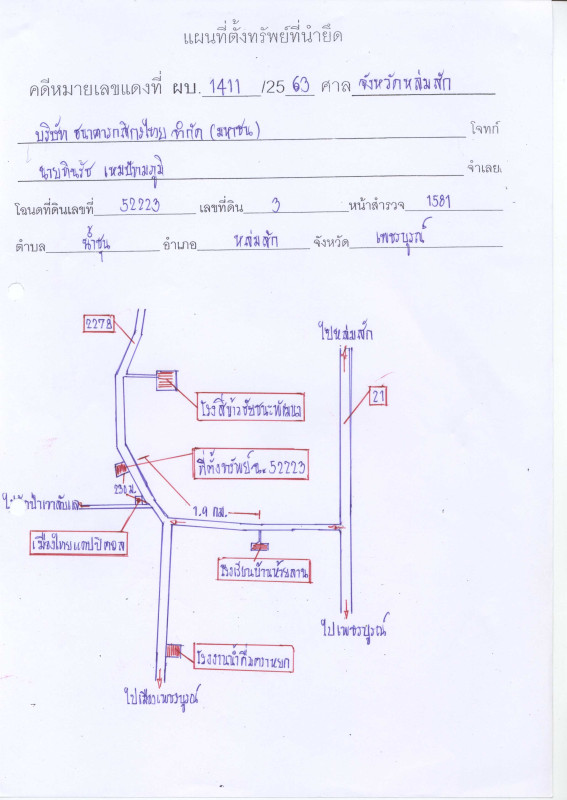 แผนที่ตั้งทรัพย์ที่นำยึด
คดีหมายเลขแดงที่ ผบ. 1411 /25 63 ศาล จังหวัดหล่มสัก
บริษัท ธนาคารกสิกรไทย จำกัด (มหาชน) โจทก์
นาย จำเลย
โฉนดที่ดินเลขที่ 52223 เลขที่ดิน 3 หน้าสำรวจ 1581
ตำบล น้ำชุน อำเภอ หล่มสัก จังหวัด เพชรบูรณ์
2278
ไปหล่มสัก
21
โรงสีข้าวชัยชนะพัฒนา
ที่ตั้งทรัพย์ 52223
230 ม.
1.9 กม.
เมืองไทยแคปปิตอล
โรงเรียนบ้านห้วยลาน
ไปเพชรบูรณ์
โรงงานน้ำดื่ม
ไปเมืองเพชรบูรณ์